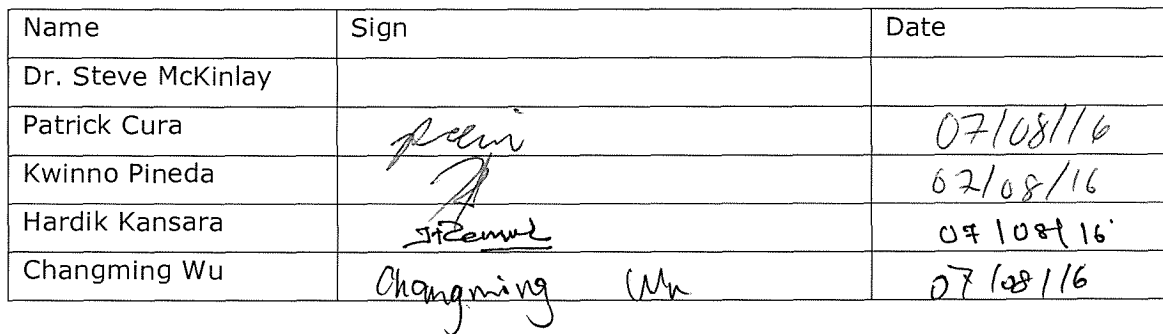 Name Sign Date
Dr. Steve McKinlay
Patrick Cura 07/08/16
Kwinno Pineda 07/08/16
Hardik Kansara 07/08/16
Changming Wu Changming Wu 07/08/16